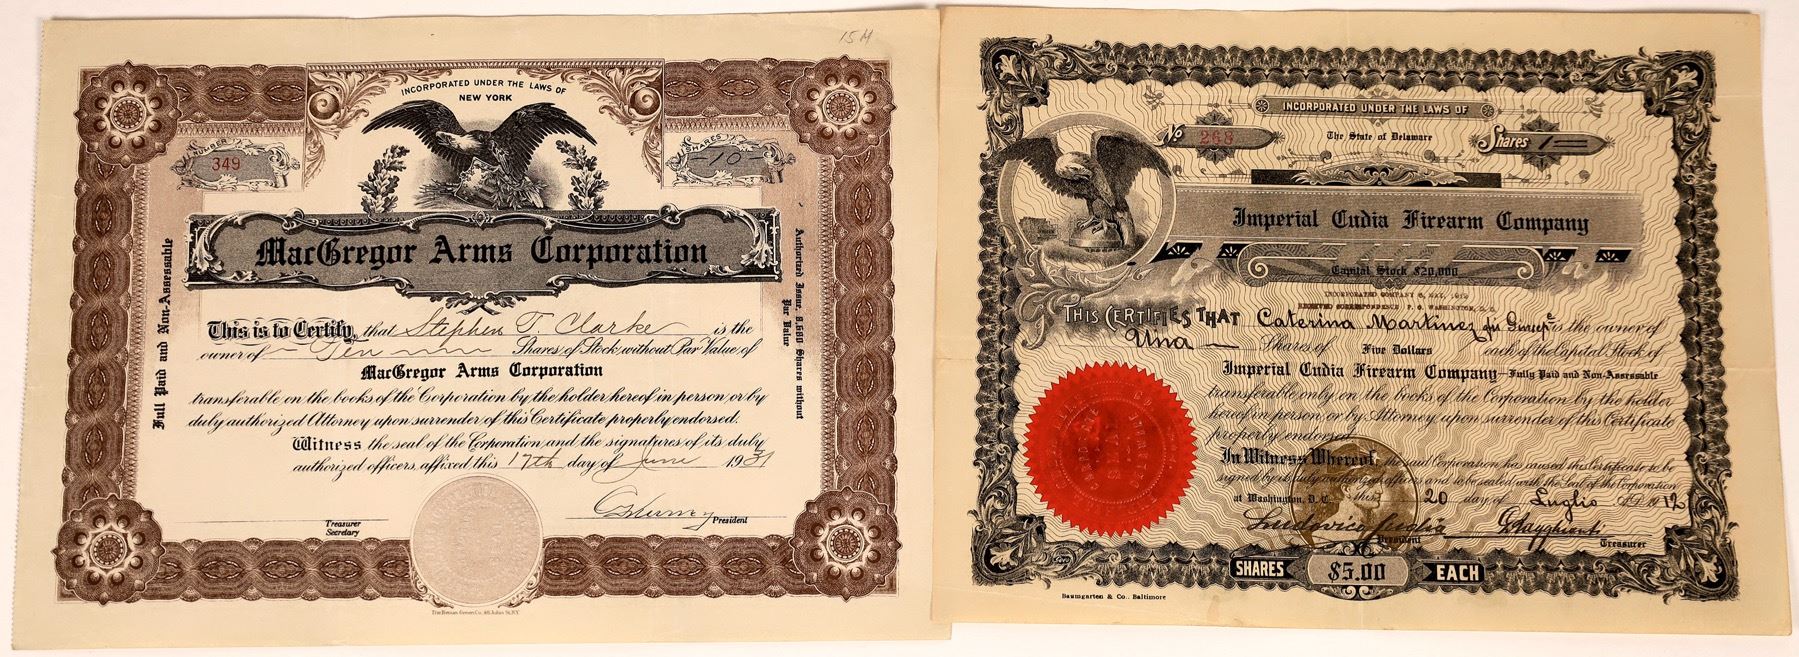 15M
INCORPORATED UNDER THE LAWS OF
NEW YORK
NUMBER
349
SHARES
-10-
MacGregor Arms Corporation
Full Paid and Non-Assessable
Authorized Issue 8,680 Shares without
Par Value
This is to Certify, that Stephen T. Clarke is the
owner of Ten Shares of Stock without Par Value of
MacGregor Arms Corporation
transferable on the books of the Corporation by the holder hereof in person or by
duly authorized Attorney upon surrender of this Certificate properly endorsed.
Witness the seal of the Corporation and the signatures of its duly
authorized officers, affixed this 17th day of June 1931
Treasurer
Secretary
President
INCORPORATED UNDER THE LAWS OF
The State of Delaware
No 268
Shares 1
Imperial Cudia Firearm Company
Capital Stock $20,000
THIS CERTIFIES THAT Caterina Martinez is the owner of
Una Shares of Five Dollars each of the Capital Stock of
Imperial Cudia Firearm Company—Fully Paid and Non-Assessable
transferable only on the books of the Corporation by the holder
hereof in person or by Attorney upon surrender of this Certificate
properly endorsed
In Witness Whereof, the said Corporation has caused this Certificate to be
signed by its duly authorized officers and to be sealed with the Seal of the Corporation
at Washington, D. C. this 20 day of Luglio A.D. 1912
Ludovico Cudia
President
Treasurer
SHARES $5.00 EACH
Baumgarten & Co., Baltimore